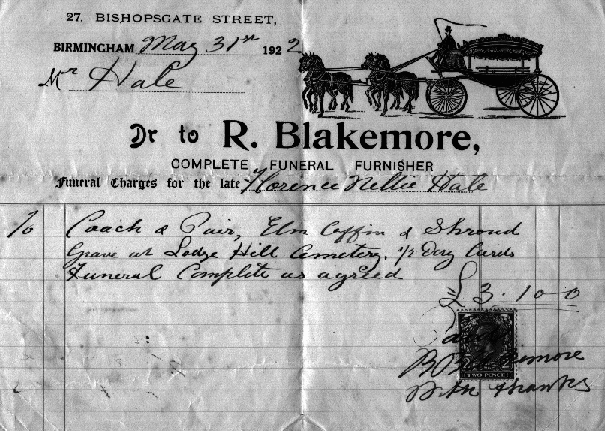 27, BISHOPSGATE STREET,
BIRMINGHAM May 31st 1922
Mr Hale
Dr to R. Blakemore,
COMPLETE FUNERAL FURNISHER
Funeral Charges for the late Florence Nellie Hale
To Coach & Pair, Elm Coffin & Shroud
Grave at Lodge Hill Cemetery, Cards
Funeral Complete as agreed
£3.10-0
R Blakemore
TWO PENCE
With thanks